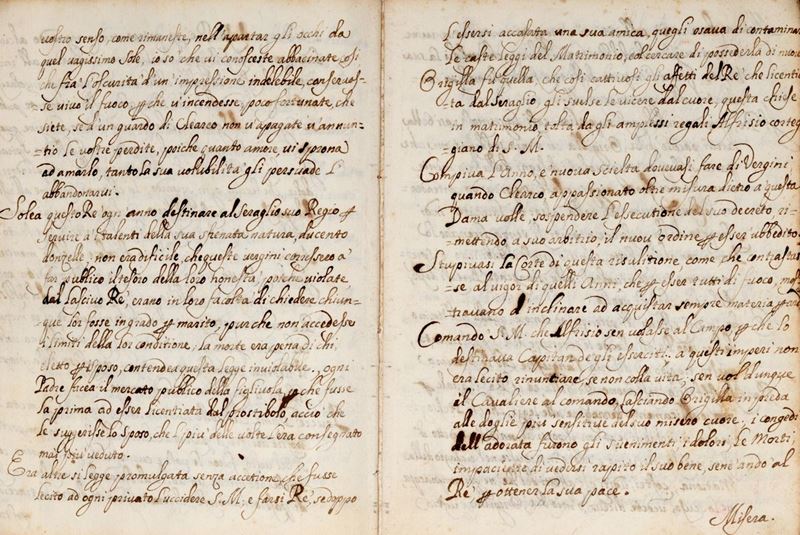 vostro senso, come rimaneste, nell'apartar gli occhi da
quel vagissimo Sole, io so che vi conosceste abbacinate così
che frà l'oscurità d'un impressione indelebile, conservas-
se vivo il fuoco, ꝑ che v'incendesse, poco fortunate, che
siete, se d'un guardo di Clearco non v'apagate v'annun-
=tio le vostre perdite, poiche quanto amore, vi sprona
ad amarlo, tanto la sua volubilità gli persuade l'
abbandonarvi.
Solea questo Re ogni anno destinare al Seraglio suo Regio ꝑ
servire a i talenti della sua sfrenata natura, ducento
donzelle, non era dificile, che queste vergini corressero a
far publico il tesoro della loro honestà, poiche violate
dal lascivo Re, erano in loro facoltà di chiedere chiun-
que lor fosse in grado ꝑ marito, purche non accedesse
i limiti della lor conditione, la morte era pena di chi
eletto ꝑ sposo, contendea questa legge inviolabile, ogni
Padre facea il mercato publico della figlivola, ꝑ che fusse
la prima ad esser licentiata dal prostibolo, acciò che
le sugerisse lo sposo, che il più delle volte l'era consegnato
mai più veduto.
Era altre si legge promulgata senza accetione, che fusse
lecito ad ogni privato l'uccidere S. M. e farsi Re, se doppo
l'essersi accasata una sua amica, quegli osava di contaminar
le caste leggi del Matrimonio, col cercare di possederla di nuovo
Origilla fu quella, che così cattivosi gli affetti del Re che licentia-
ta dal seraglio gli suelse le viscere dal cuore, questa chiese
in matrimonio, tolta da gli amplessi regali Alfrisio corteg
giano di S. M.
Compiva l'Anno, e nuova scielta dovevasi fare di Vergini
quando Clearco, appassionato oltre misura dietro a questa
Dama volle, sospendere l'essecutione del suo decreto, ri-
mettendo a suo arbitrio, il nuovo ordine ꝑ esser ubbedito.
Stupivasi la Corte di questa risolutione, come che contrastas-
se al vigor di quelli Anni, che ꝑ esser tutti di fuoco, mos-
travano d'inclinare ad acquistar sempre materia ꝑ
Comandò S. M. che Alfrisio sen volasse al Campo, ꝑ che lo
destinava Capitan de gli esserciti, a questi imperi non
era lecito rinuntiare, se non colla vita, sen volò dunque
il Cavaliere al comando, lasciando Origilla in preda
alle doglie più sensitive del suo misero cuore, i congedi
dell'adorata furono gli svenimenti i dolori, le Morti,
impaciente di vedersi rapito il suo bene, sen andò al
Re ꝑ ottener la sua pace.
Misera.